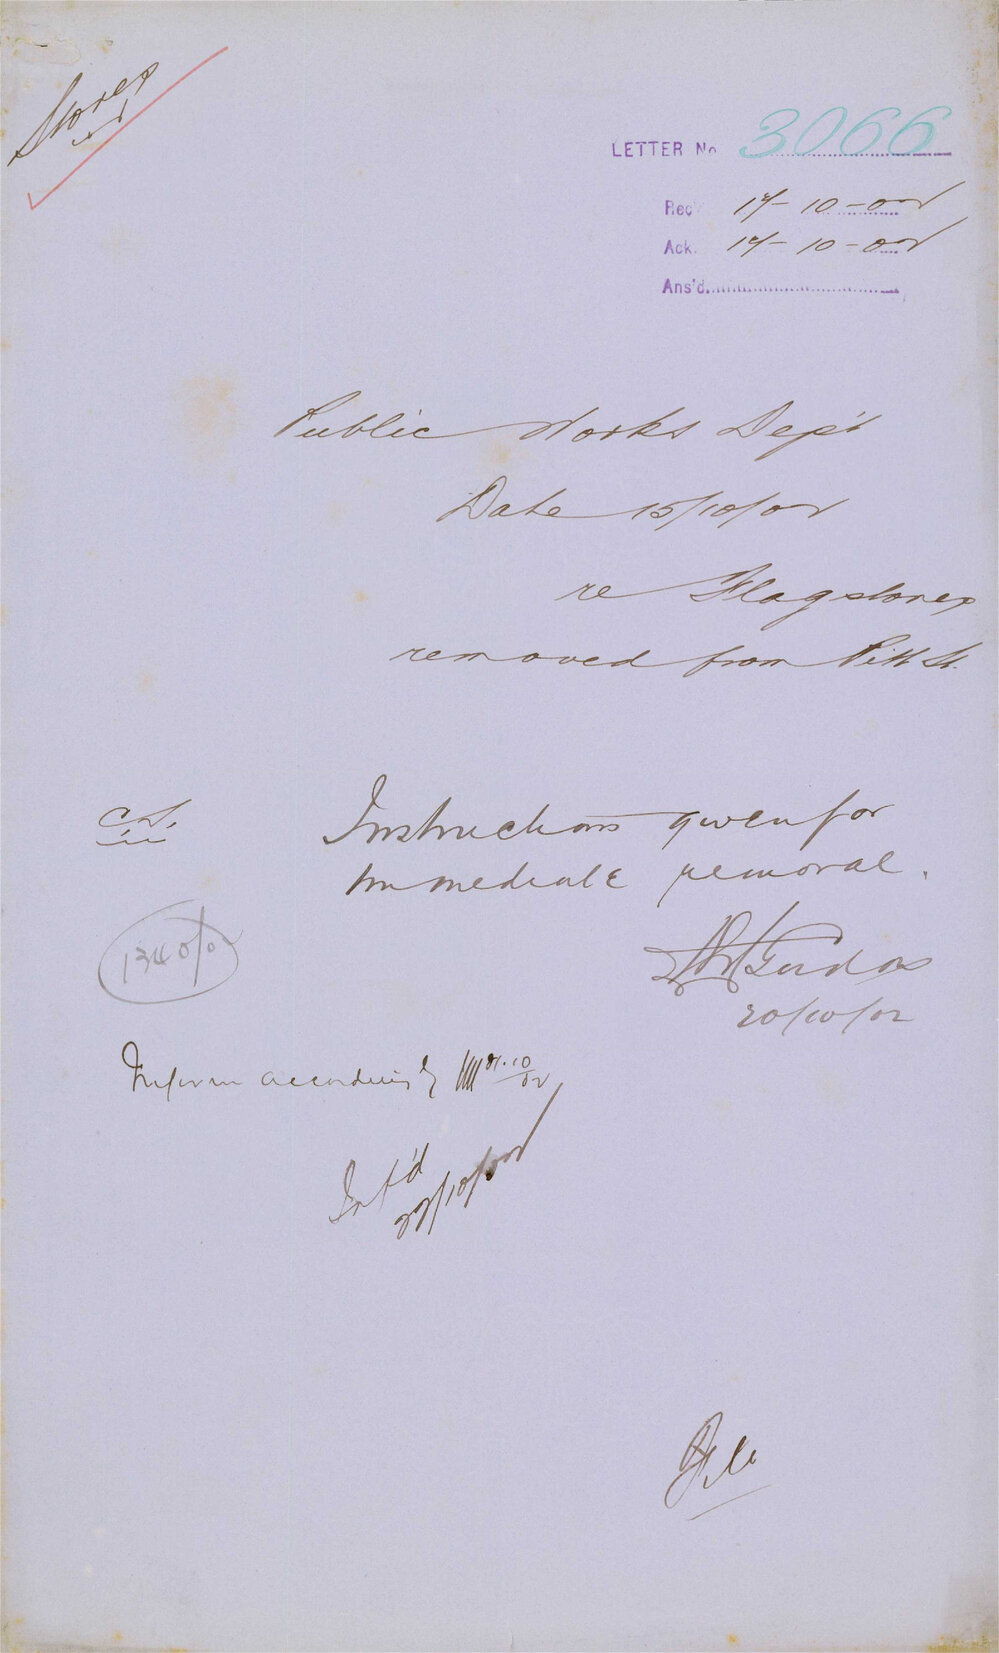 Stores
LETTER No 3066
Rec 17-10-02
Ack. 17-10-02
Ans'd.
Public Works Dep't
Date 15/10/02
re Flagstones
removed from Pitt St.
C.S. Instructions given for
immediate removal.
20/10/02
1340/02
Inform accordingly 21.10/02
Inf'd
22/10/02
File